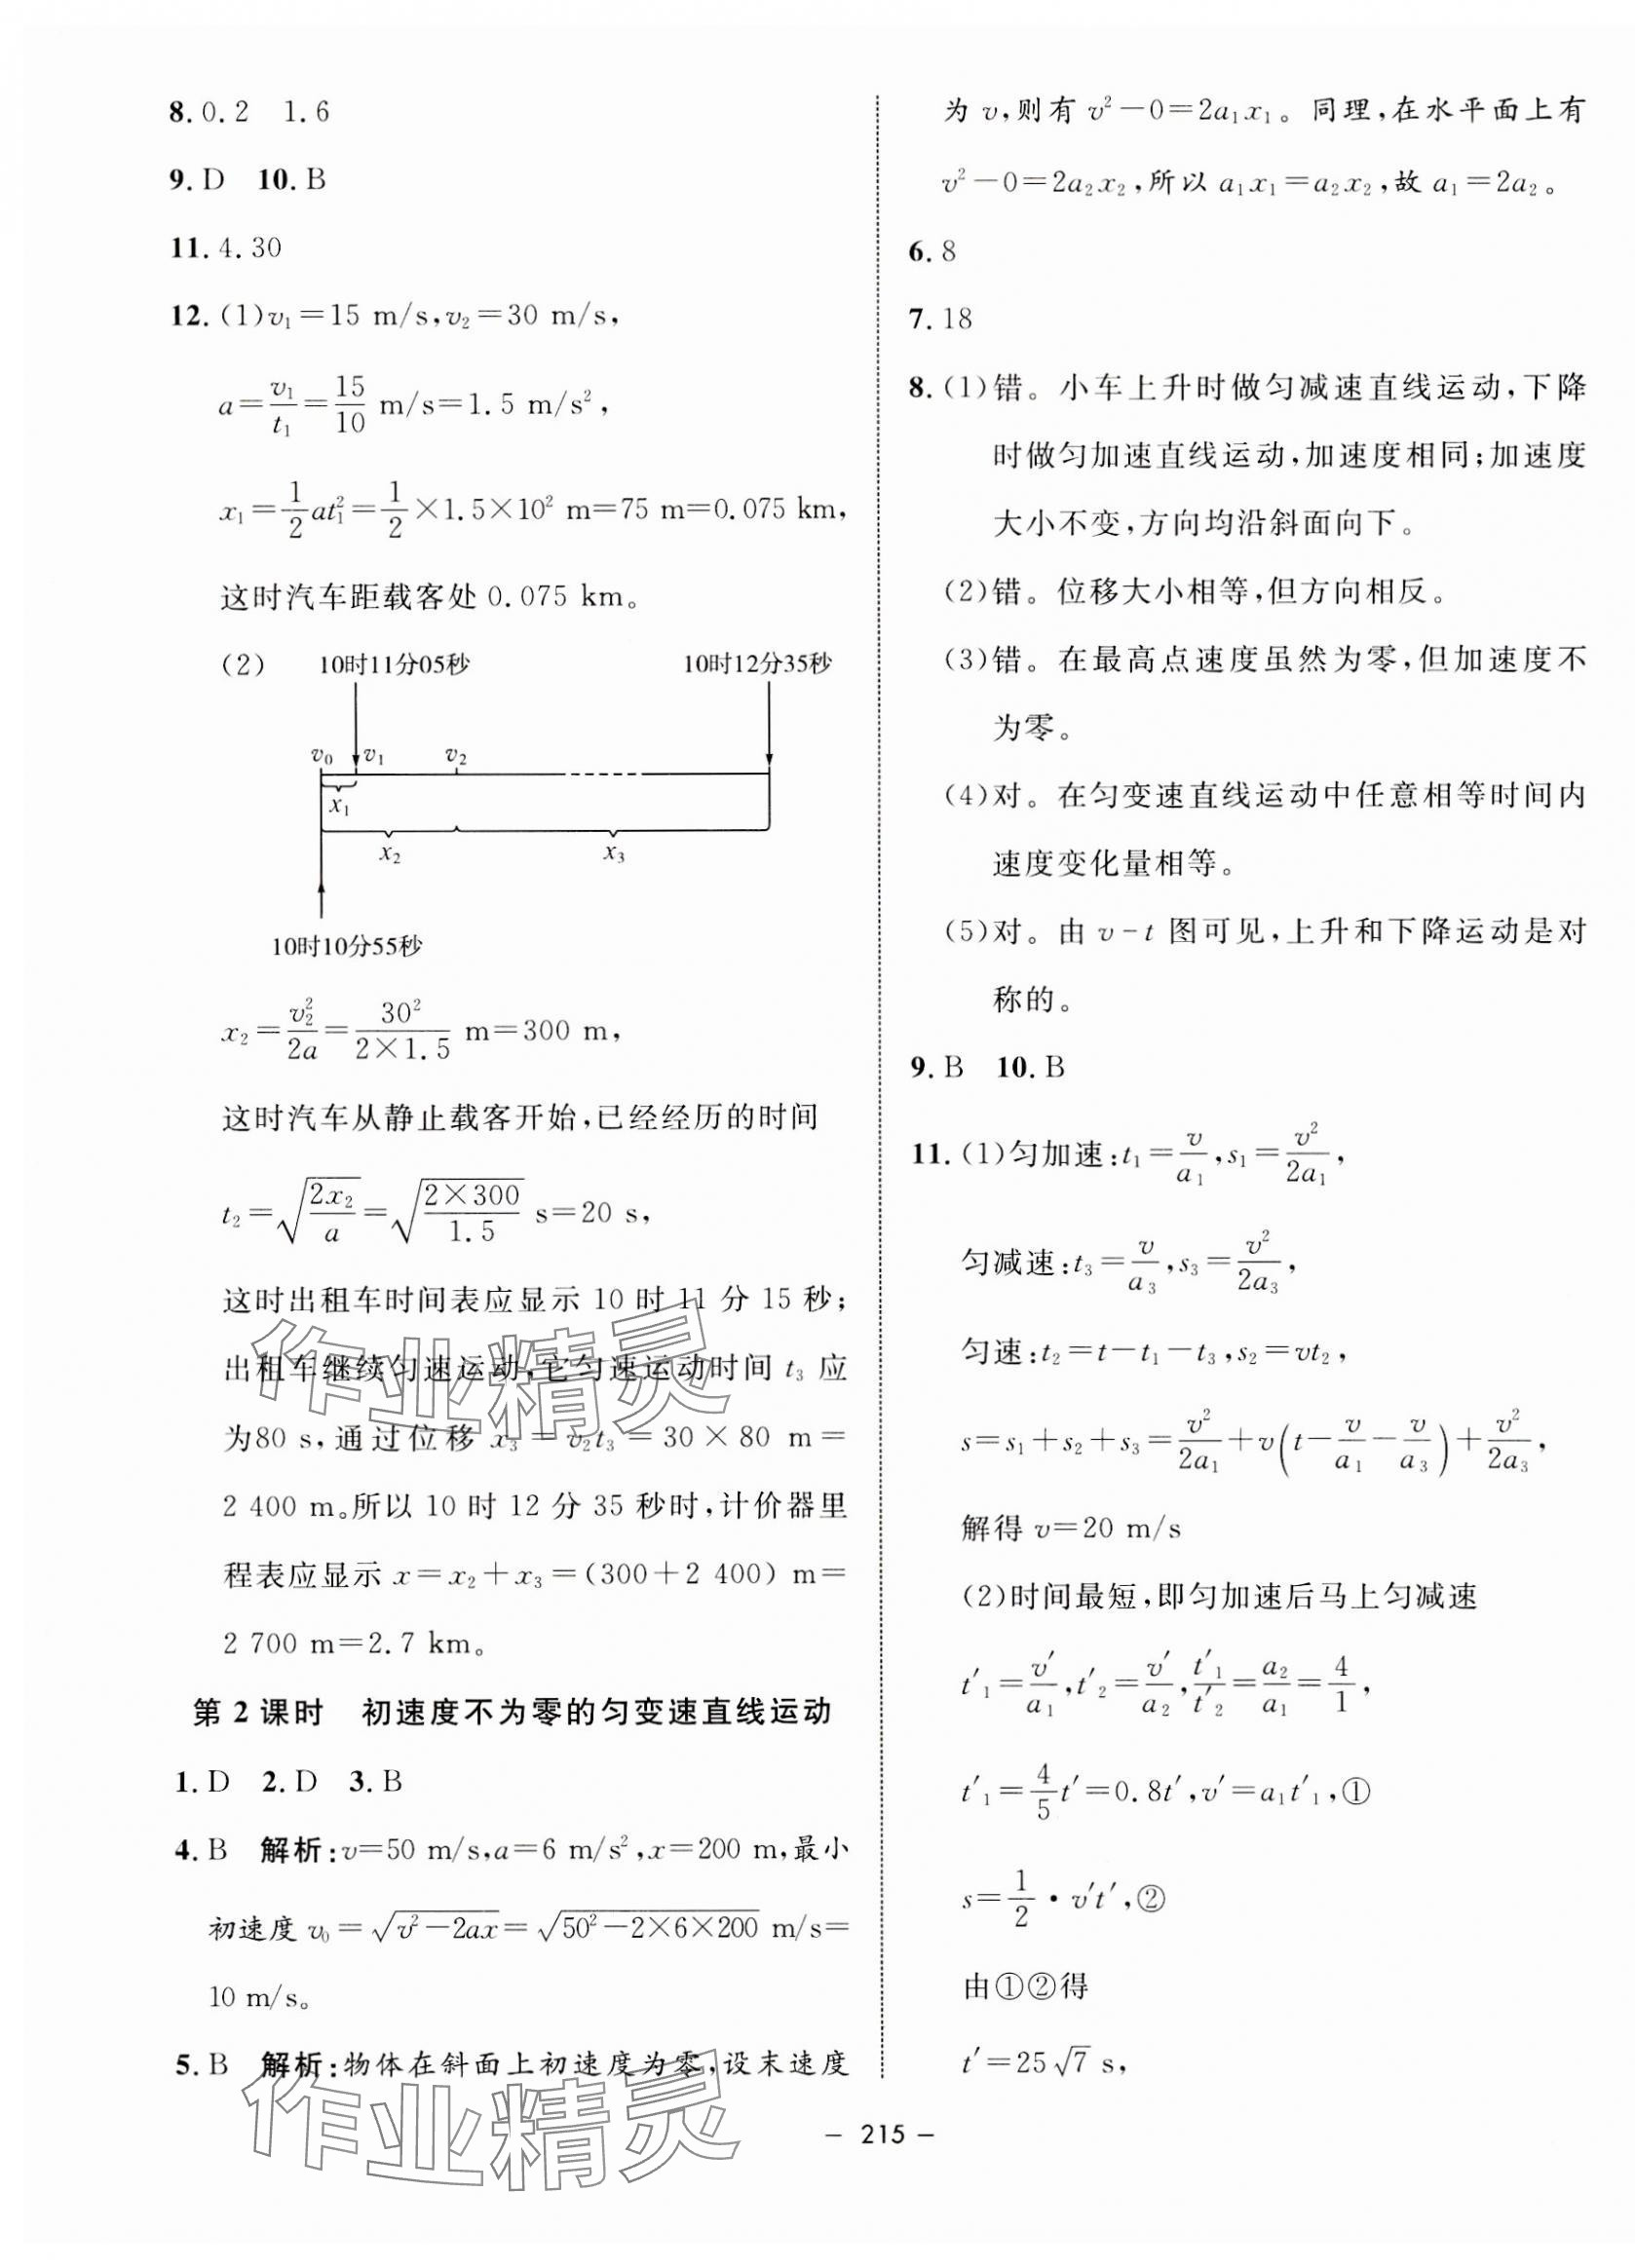 8. 0.2　1.6
9. D　10. B
11. 4.30
12. (1)v₁=15 m/s,v₂=30 m/s,
a=v₁/t₁=15/10 m/s=1.5 m/s²,
x₁=1/2at₁²=1/2×1.5×10² m=75 m=0.075 km,
这时汽车距载客处 0.075 km。
(2)　10时11分05秒　10时12分35秒
v₀　v₁　v₂
x₁
x₂　x₃
10时10分55秒
x₂=v₂²/2a=30²/(2×1.5) m=300 m,
这时汽车从静止载客开始,已经经历的时间
t₂=√(2x₂/a)=√(2×300/1.5) s=20 s,
这时出租车时间表应显示 10 时 11 分 15 秒;
出租车继续匀速运动,它匀速运动时间 t₃ 应
为80 s,通过位移 x₃=v₂t₃=30×80 m=
2 400 m。所以 10 时 12 分 35 秒时,计价器里
程表应显示 x=x₂+x₃=(300+2 400) m=
2 700 m=2.7 km。
第 2 课时　初速度不为零的匀变速直线运动
1. D　2. D　3. B
4. B　解析:v=50 m/s,a=6 m/s²,x=200 m,最小
初速度 v₀=√(v²-2ax)=√(50²-2×6×200) m/s=
10 m/s。
5. B　解析:物体在斜面上初速度为零,设末速度
为 v,则有 v²-0=2a₁x₁。同理,在水平面上有
v²-0=2a₂x₂,所以 a₁x₁=a₂x₂,故 a₁=2a₂。
6. 8
7. 18
8. (1)错。小车上升时做匀减速直线运动,下降
时做匀加速直线运动,加速度相同;加速度
大小不变,方向均沿斜面向下。
(2)错。位移大小相等,但方向相反。
(3)错。在最高点速度虽然为零,但加速度不
为零。
(4)对。在匀变速直线运动中任意相等时间内
速度变化量相等。
(5)对。由 v-t 图可见,上升和下降运动是对
称的。
9. B　10. B
11. (1)匀加速:t₁=v/a₁,s₁=v²/2a₁,
匀减速:t₃=v/a₃,s₃=v²/2a₃,
匀速:t₂=t-t₁-t₃,s₂=vt₂,
s=s₁+s₂+s₃=v²/2a₁+v(t-v/a₁-v/a₃)+v²/2a₃,
解得 v=20 m/s
(2)时间最短,即匀加速后马上匀减速
t′₁=v′/a₁,t′₂=v′/a₂,t′₁/t′₂=a₂/a₁=4/1,
t′₁=4/5t′=0.8t′,v′=a₁t′₁,①
s=1/2·v′t′,②
由①②得
t′=25√7 s,
- 215 -
作业精灵
作业精灵